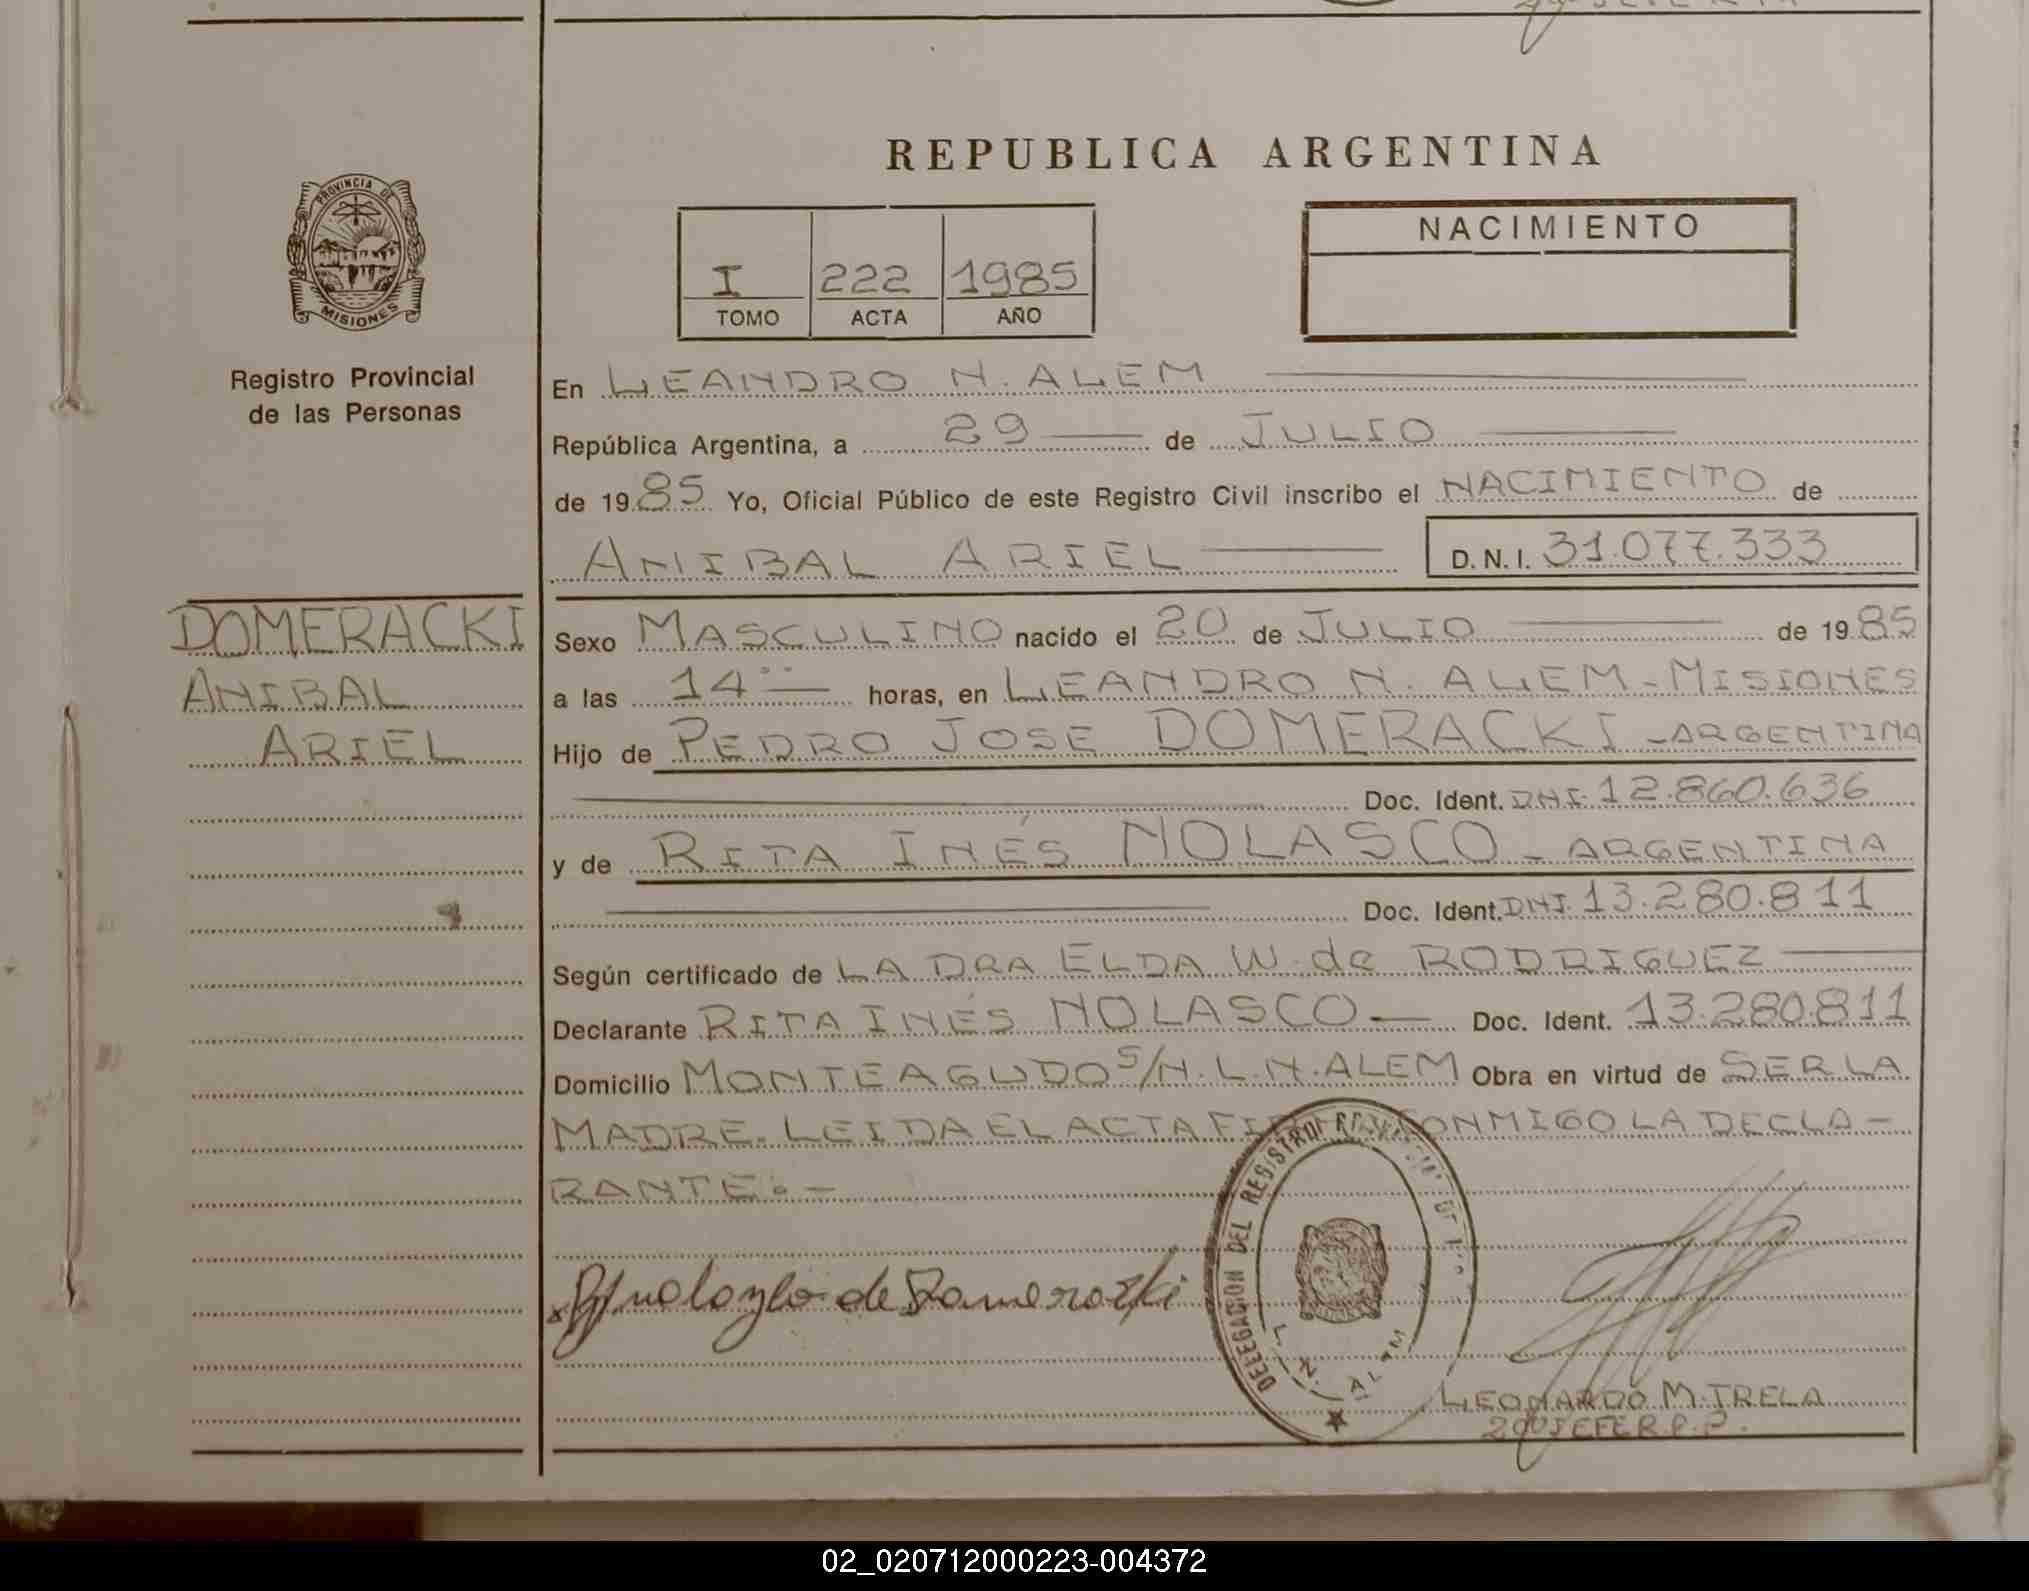 REPUBLICA ARGENTINA
PROVINCIA DE
MISIONES
Registro Provincial
de las Personas
I 222 1985
TOMO ACTA AÑO
NACIMIENTO
En LEANDRO N. ALEM
República Argentina, a 29 de JULIO
de 1985 Yo, Oficial Público de este Registro Civil inscribo el NACIMIENTO de
ANIBAL ARIEL D.N.I. 31.077.333
DOMERACKI
ANIBAL
ARIEL
Sexo MASCULINO nacido el 20 de JULIO de 1985
a las 14 horas, en LEANDRO N. ALEM - MISIONES
Hijo de PEDRO JOSE DOMERACKI - ARGENTINA
Doc. Ident. DNI. 12.860.636
y de RITA INÉS NOLASCO - ARGENTINA
Doc. Ident. DNI. 13.280.811
Según certificado de LA DRA ELDA W. de RODRIGUEZ
Declarante RITA INÉS NOLASCO — Doc. Ident. 13.280.811
Domicilio MONTEAGUDO S/N. L.N. ALEM Obra en virtud de SER LA
MADRE. LEIDA EL ACTA CONMIGO LA DECLA-
RANTE.-
de Domeracki
DELEGACION DEL REGISTRO
L. N. ALEM
LEONARDO M. TRELA
2do JEFE R.P.P.
02_020712000223-004372